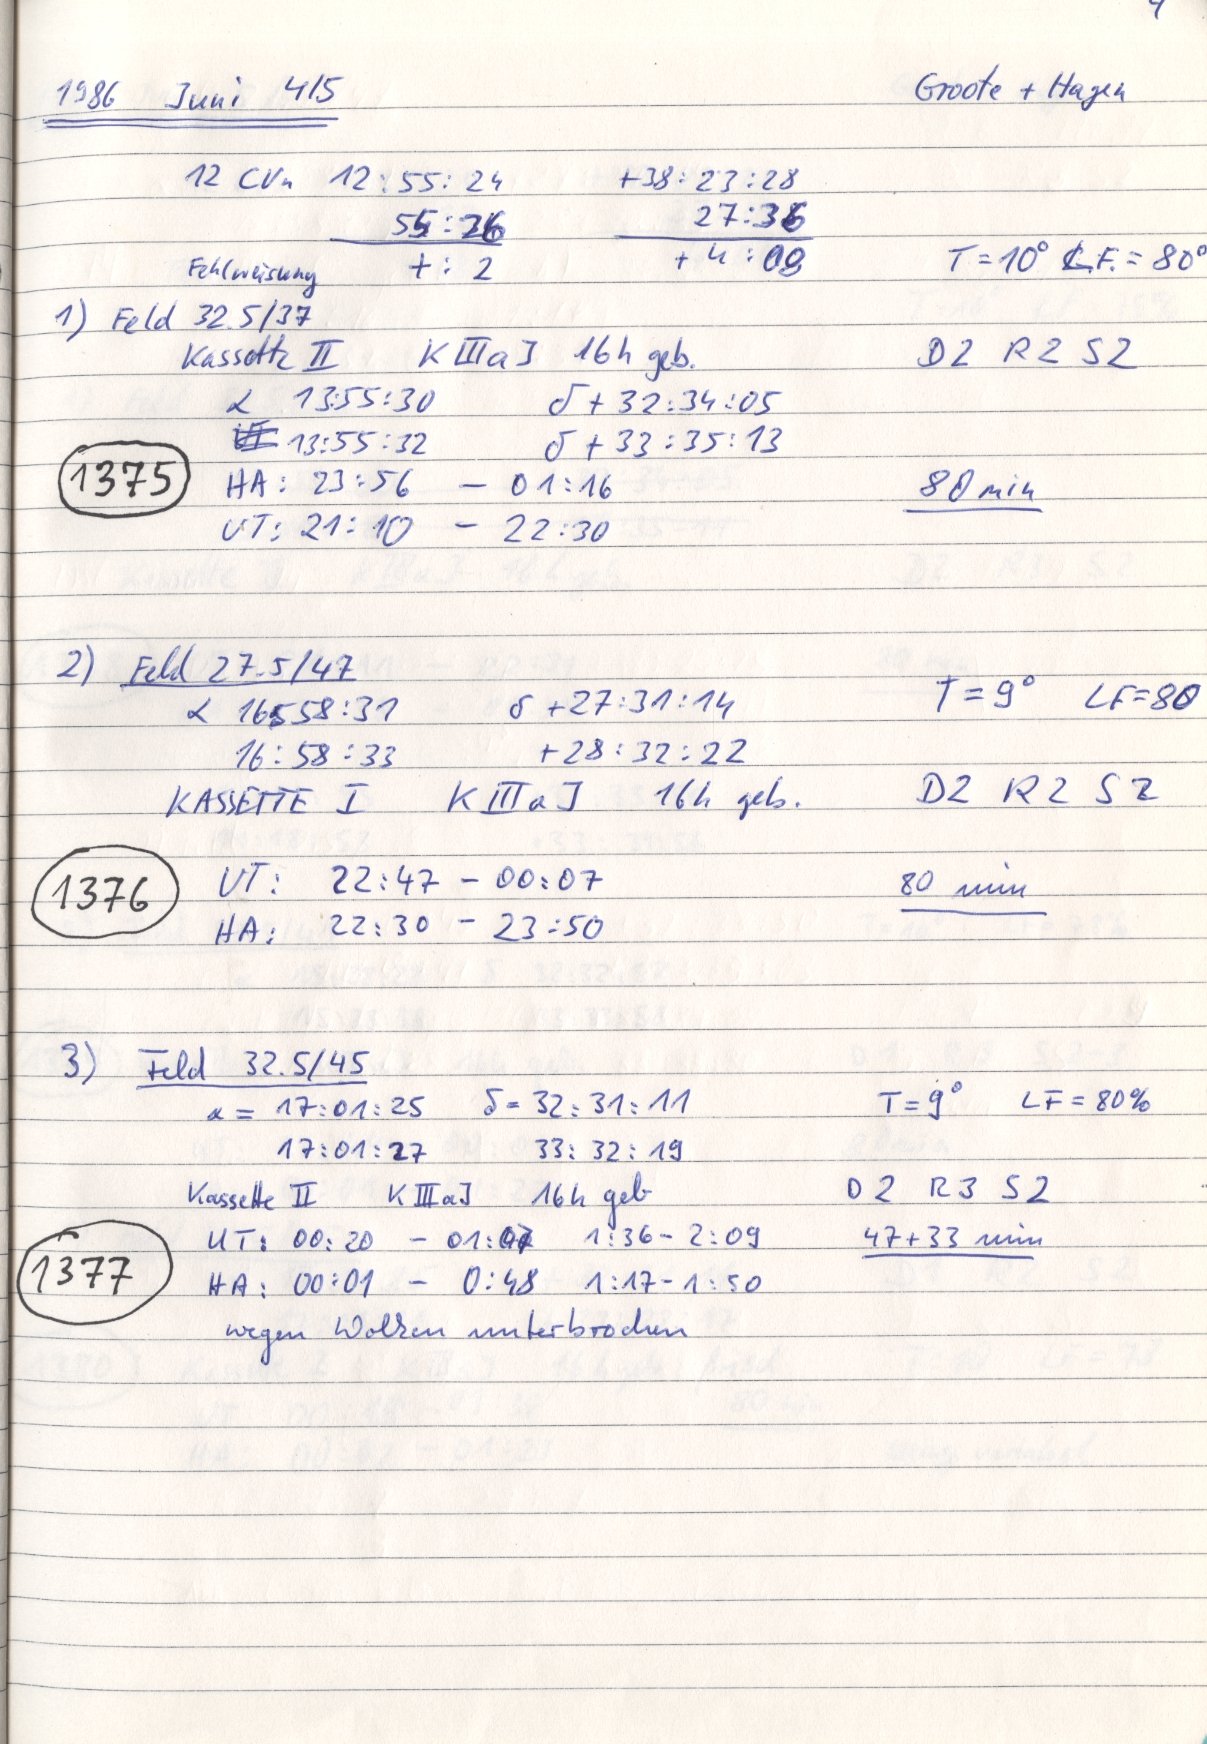 4
1986 Juni 4/5 Groote + Hagen
12 CVn 12:55:24 +38:23:28
55:26 27:36
Fehlweisung +: 2 + 4:08 T=10° LF.=80°
1) Feld 32.5/37
Kassette II KIIIaJ 16h geb. D2 R2 S2
α 13:55:30 δ+32:34:05
13:55:32 δ+33:35:13
1375 HA: 23:56 – 01:16 80 min
UT: 21:10 – 22:30
2) Feld 27.5/47
α 16:58:31 δ+27:31:14 T=9° LF=80
16:58:33 +28:32:22
KASSETTE I KIIIaJ 16h geb. D2 R2 S2
1376 UT: 22:47 – 00:07 80 min
HA: 22:30 – 23:50
3) Feld 32.5/45
α = 17:01:25 δ= 32:31:11 T=9° LF=80%
17:01:27 33:32:19
Kassette II KIIIaJ 16h geb D2 R3 S2
UT: 00:20 – 01:07 1:36–2:09 47+33 min
1377 HA: 00:01 – 0:48 1:17–1:50
wegen Wolken unterbrochen